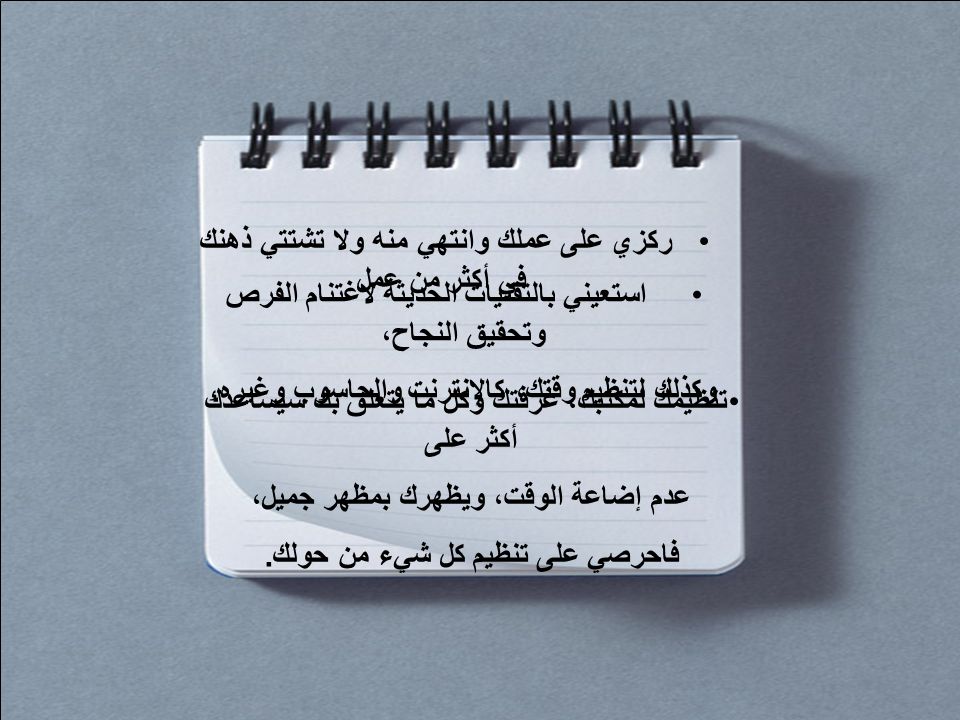 • ركزي على عملك وانتهي منه ولا تشتتي ذهنك
في أكثر من عمل
• استعيني بالتقنيات الحديثة لاغتنام الفرص
وتحقيق النجاح،
وكذلك لتنظيم وقتك، كالإنترنت والحاسوب وغيره.
• تنظيمك لمكتبك، غرفتك وكل ما يتعلق بك سيساعدك
أكثر على
عدم إضاعة الوقت، ويظهرك بمظهر جميل،
فاحرصي على تنظيم كل شيء من حولك.